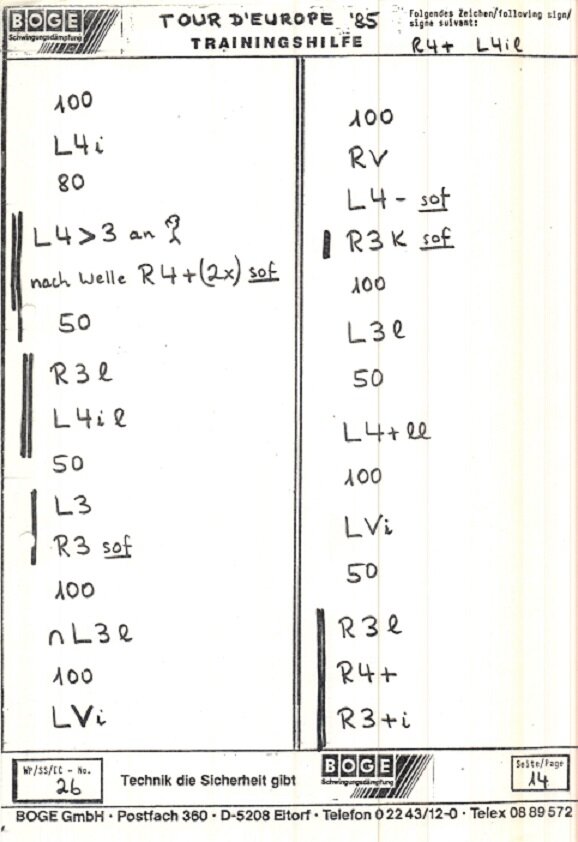 BOGE
Schwingungsdämpfung
TOUR D'EUROPE '85
TRAININGSHILFE
Folgendes Zeichen/following sign/
signe suivant:
R4+ L4il
100
L4i
80
L4>3 an
nach Welle R4+(2x) sof
50
R3l
L4il
50
L3
R3 sof
100
nL3l
100
LVi
100
RV
L4- sof
R3K sof
100
L3l
50
L4+ll
100
LVi
50
R3l
R4+
R3+i
WP/SS/CC - No.
26
Technik die Sicherheit gibt
BOGE
Schwingungsdämpfung
Seite/Page
14
BOGE GmbH · Postfach 360 · D-5208 Eitorf · Telefon 0 22 43/12-0 · Telex 08 89 572